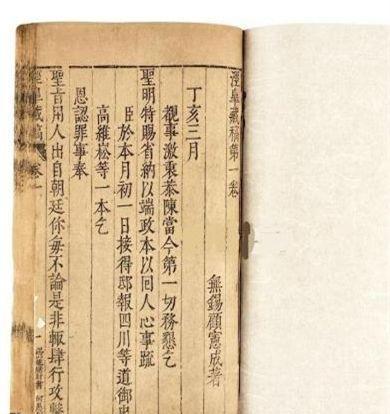 涇臯藏稿第一卷
無錫顧憲成著
丁亥三月
覩事激衷恭陳當今第一切務懇乞
聖明特賜省納以端政本以回人心事疏
臣於本月初一日接得邸報四川等道御史
高維崧等一本乞
恩認罪事奉
聖旨用人出自朝廷你每不論是非輒肆行攻擊
涇臯藏稿 卷一 一